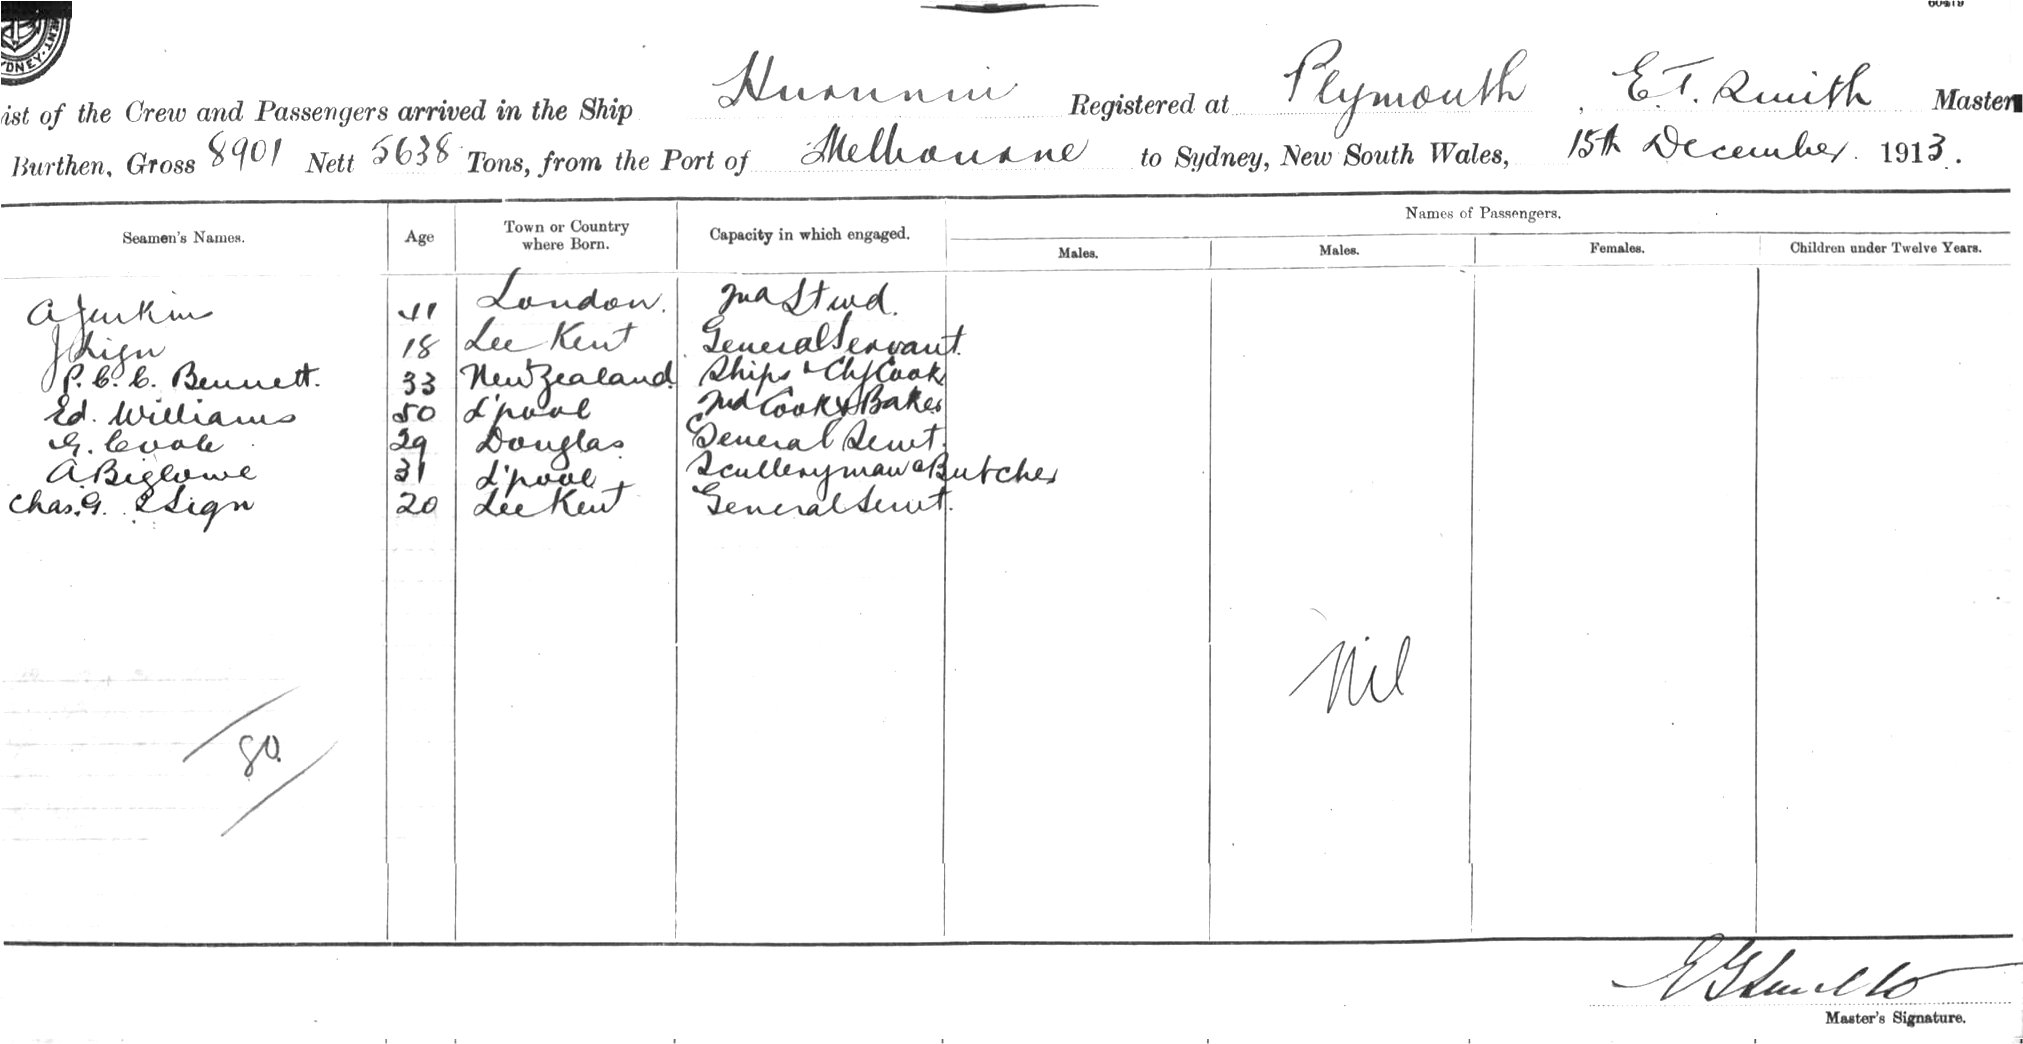 60919
DNEY
ist of the Crew and Passengers arrived in the Ship Hurunui Registered at Plymouth, E. T. Smith Master
Burthen, Gross 8901 Nett 5638 Tons, from the Port of Melbourne to Sydney, New South Wales, 15th December 1913.
Names of Passengers.
Seamen's Names. Age Town or Country where Born. Capacity in which engaged. Males. Males. Females. Children under Twelve Years.
A Jenkins 41 London. 2nd Stwd.
J Sign 18 Lee Kent General Servant.
P. C. C. Bennett. 33 New Zealand Ships & Chf Cook
Ed. Williams 50 L'pool 2nd Cook & Baker
G. 29 Douglas General Servt.
A. Biglowe 31 L'pool Sculleryman & Butcher
Chas. G. Sign 20 Lee Kent General Servt.
Nil
80.
Master's Signature.